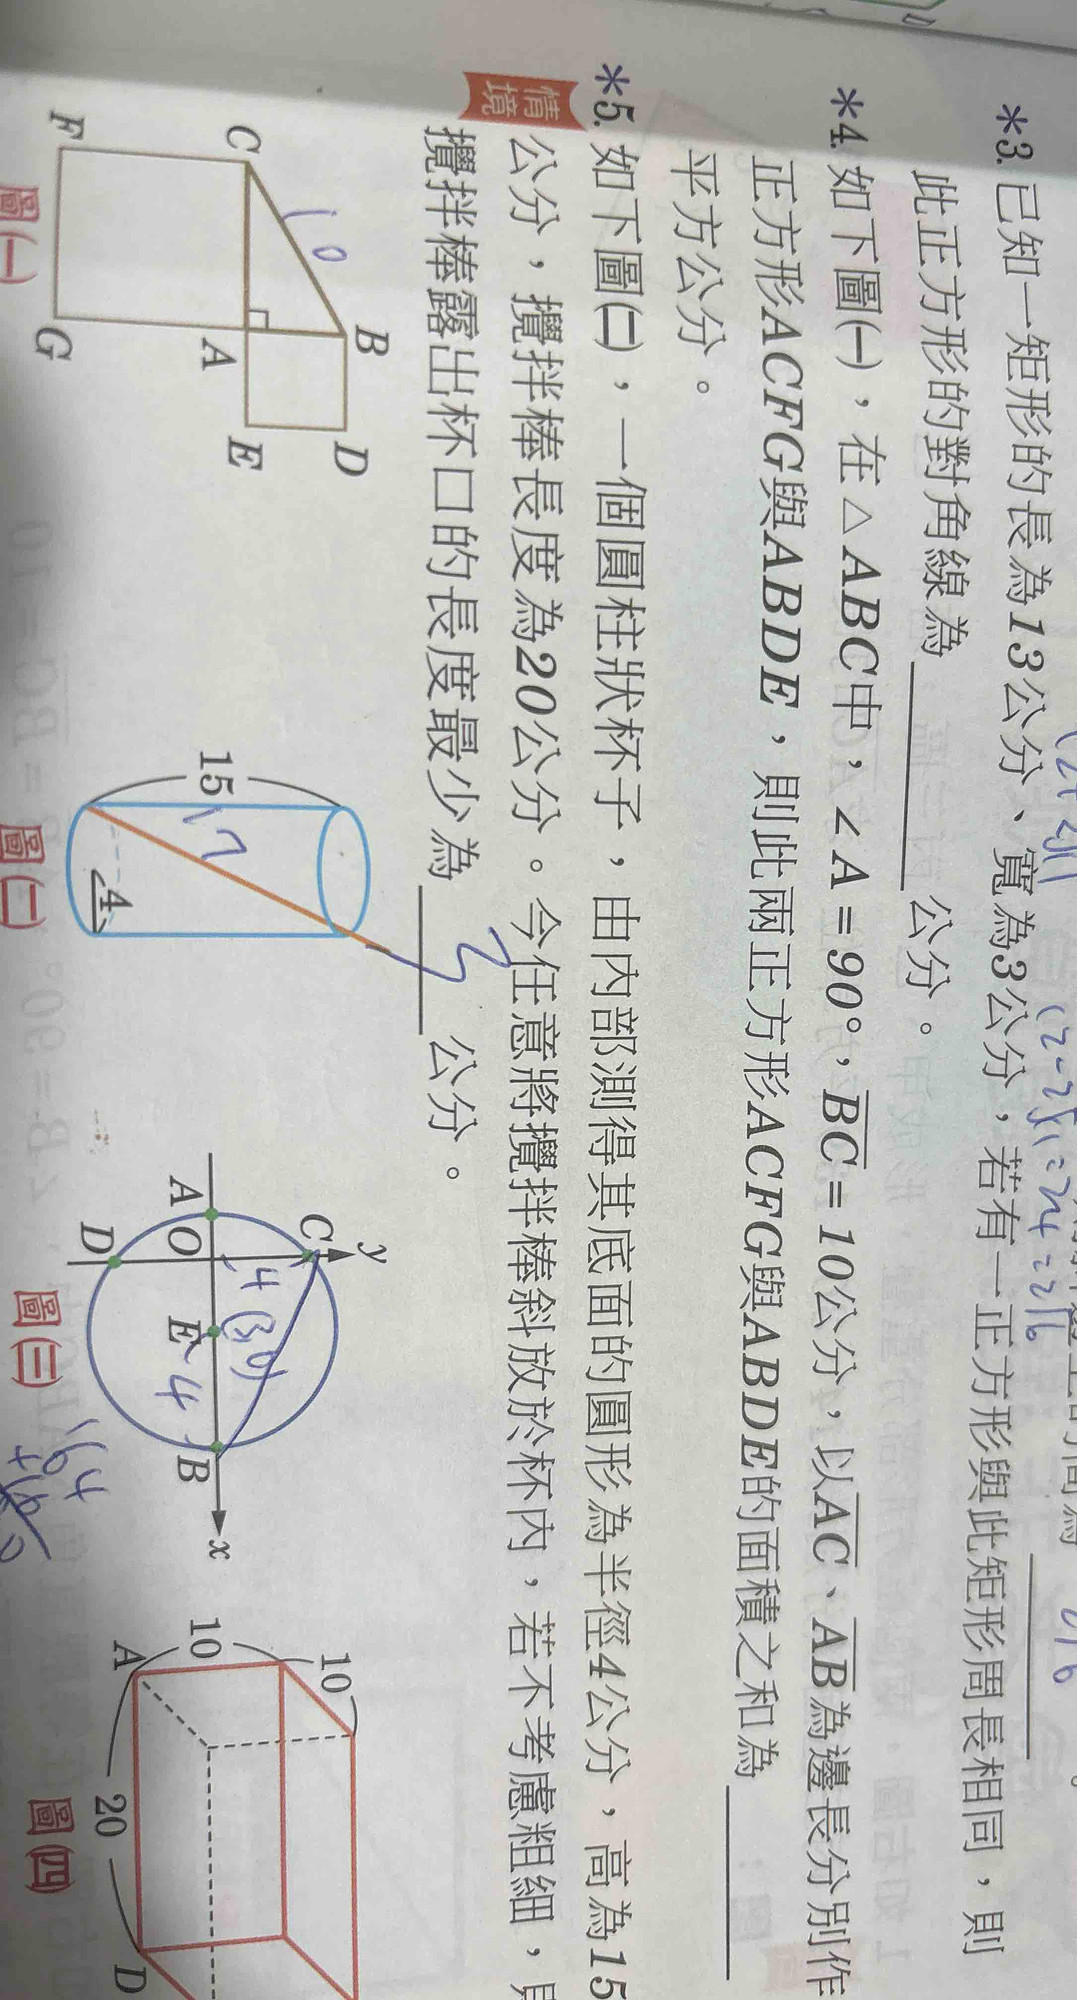 *3. 已知一矩形的長為13公分、寬為3公分，若有一正方形與此矩形周長相同，則
此正方形的對角線為＿＿＿公分。
*4. 如下圖(一)，在△ABC中，∠A=90°，BC=10公分，以AC、AB為邊長分別作
正方形ACFG與ABDE，則此兩正方形ACFG與ABDE的面積之和為＿＿＿
平方公分。
*5. 如下圖(二)，一個圓柱狀杯子，由內部測得其底面的圓形為半徑4公分，高為15
情境
公分，攪拌棒長度為20公分。今任意將攪拌棒斜放於杯內，若不考慮粗細，
攪拌棒露出杯口的長度最少為 3 公分。
B
D
10
C
A
E
F
G
圖(一)
15
17
4
圖(二)
y
C
4
(3,0)
A
O
E
4
B
x
D
圖(三)
10
10
A
20
D
圖(四)